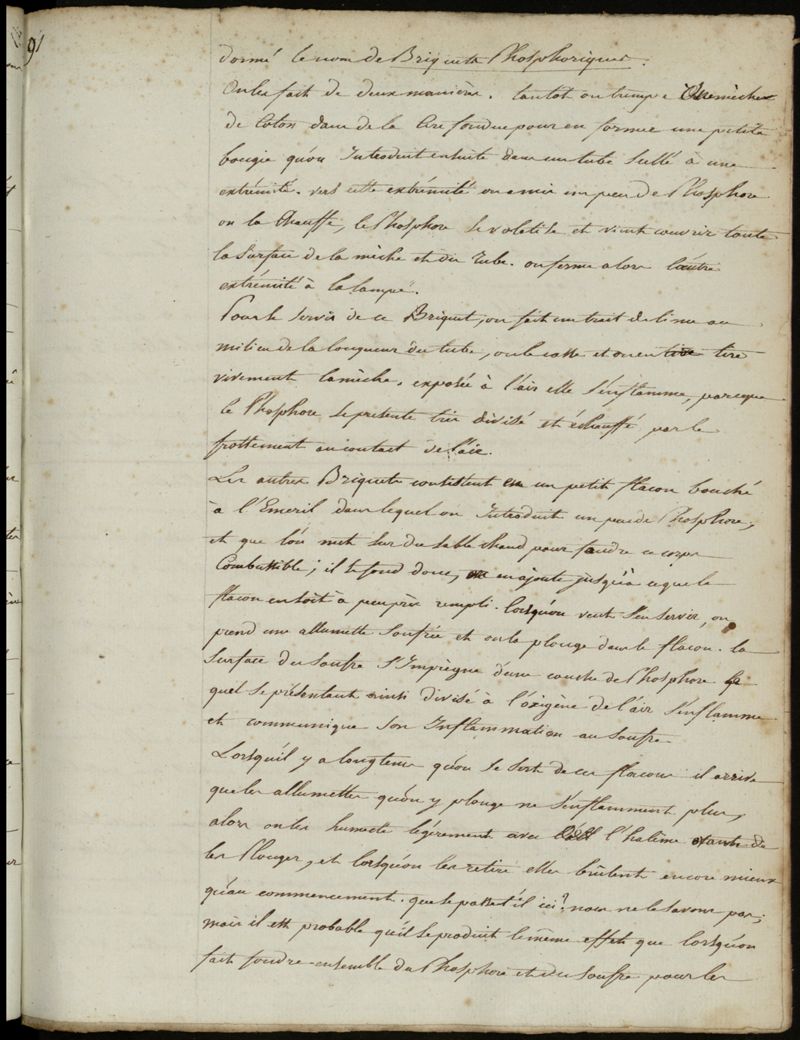 91
donné le nom de Briquets Phosphoriques.
On les fait de deux manières. tantot on trempe une mèche
de Coton dans de la Cire fondue pour en former une petite
bougie qu'on Introduit ensuite dans un tube Scellé à une
extrémité. vers cette extrémité on a mis un peu de Phosphore
on la Chauffe, le Phosphore se volatilise et vient couvrir toute
la Surface de la mèche et du Tube. on ferme alors l'autre
extrémité à la lampe.
Pour se servir de ce Briquet, on fait un trait de lime au
milieu de la longueur du tube, on le casse et on en tire
vivement la mèche. exposée à l'air elle s'enflamme, parceque
le Phosphore se présente très divisé et échauffé par le
frottement au contact de l'air.
Les autres Briquets consistent en un petit flacon bouché
à l'Emeril dans lequel on Introduit un peu de Phosphore,
et que l'on met sur du sable chaud pour fondre ce corps
Combustible; il se fond donc, on en ajoute jusqu'à ce que le
flacon en soit à peu près rempli. lorsqu'on veut s'en servir, on
prend une allumette soufrée et on la plonge dans le flacon. la
surface du soufre s'Imprègne d'une couche de Phosphore le
quel se présentant ainsi divisé à l'oxigène de l'air s'enflamme
et communique son Inflammation au soufre.
Lorsqu'il y a longtems qu'on se sert de ces flacons il arrive
que les allumettes qu'on y plonge ne s'enflamment plus,
alors on les humecte légèrement avec l'haleine avant de
les Plonger, et lorsqu'on les retire elles brûlent encore mieux
qu'au commencement. que se passe t'il ici? nous ne le savons pas;
mais il est probable qu'il se produit le même effet que lorsqu'on
fait fondre ensemble du Phosphore et du soufre pour les